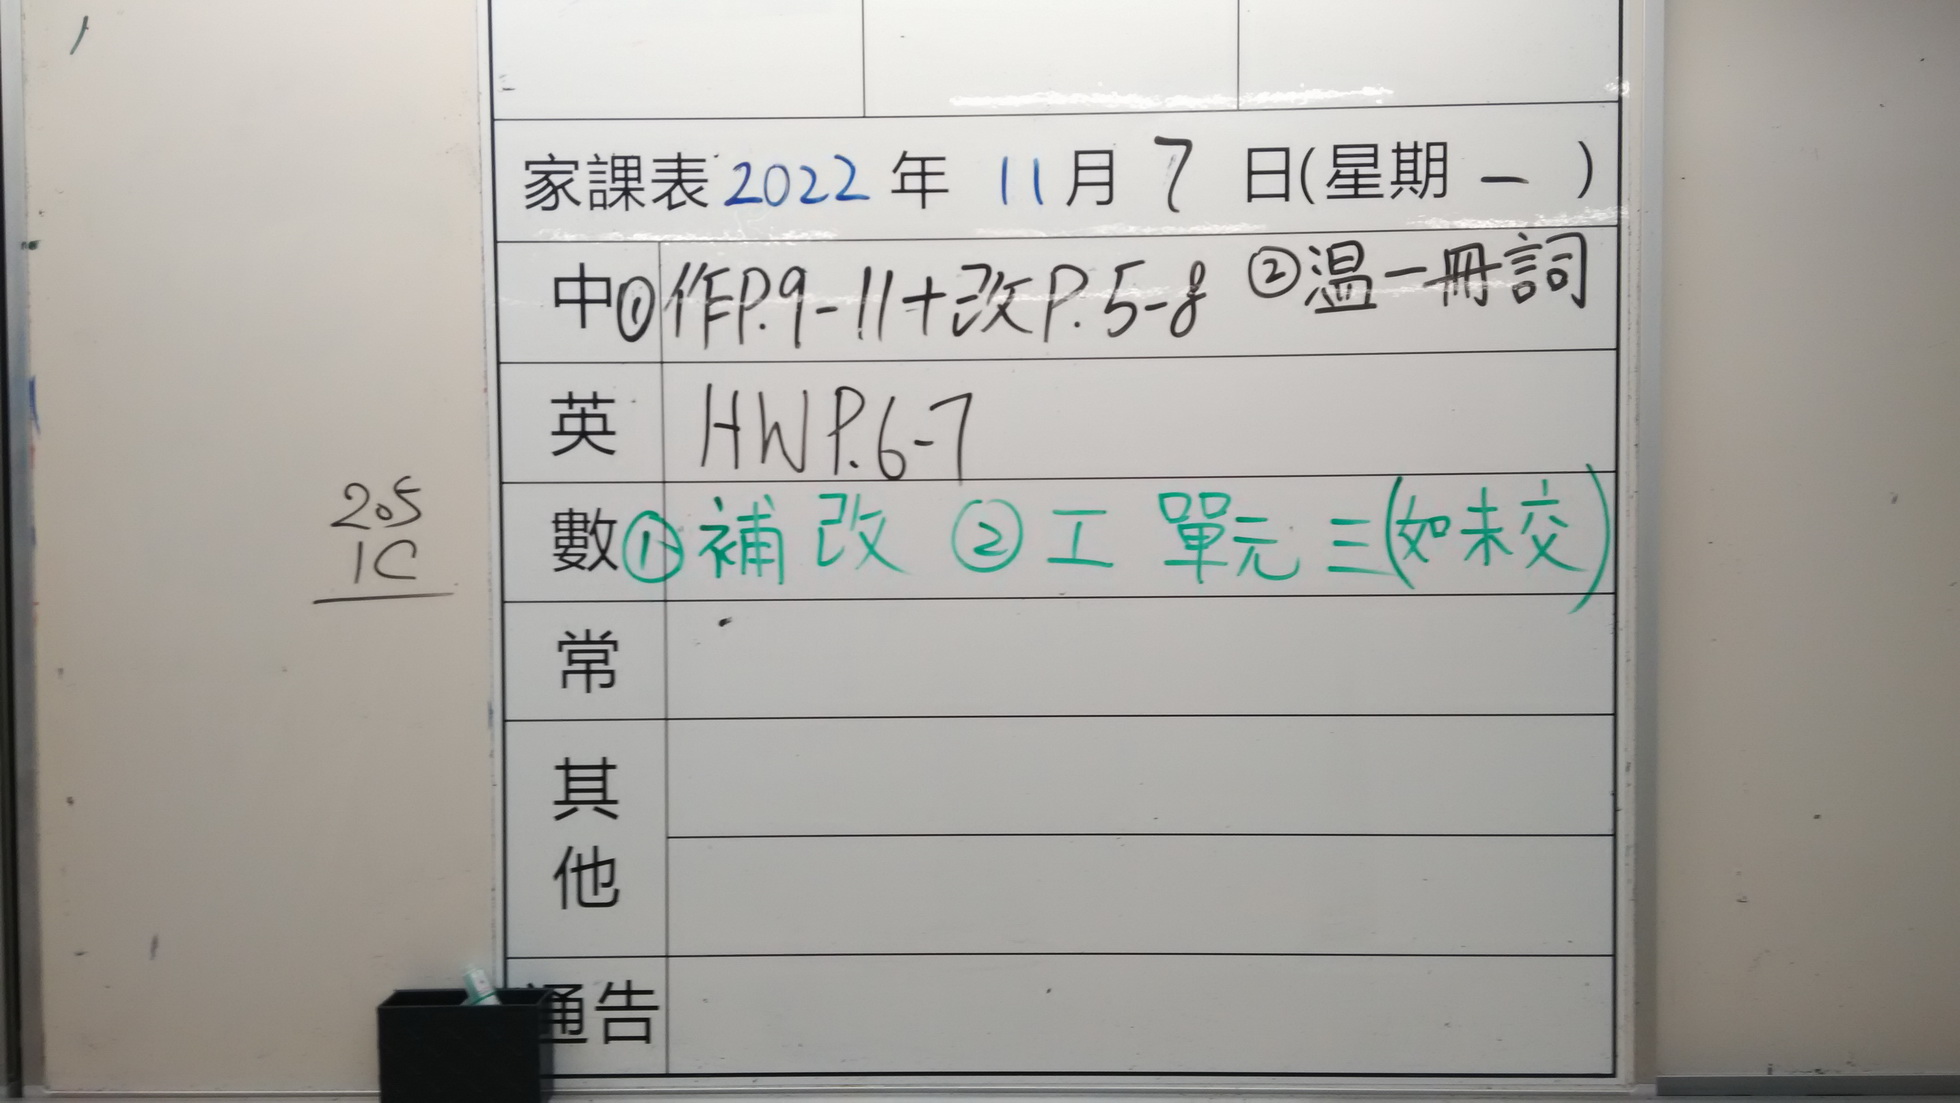 家課表 2022 年 11 月 7 日(星期 一 )
中 ①作P.9-11+改P.5-8 ②温一冊詞
英 HW P.6-7
數 ①補改 ②工 單元三(如未交)
205
1C
常
其他
通告